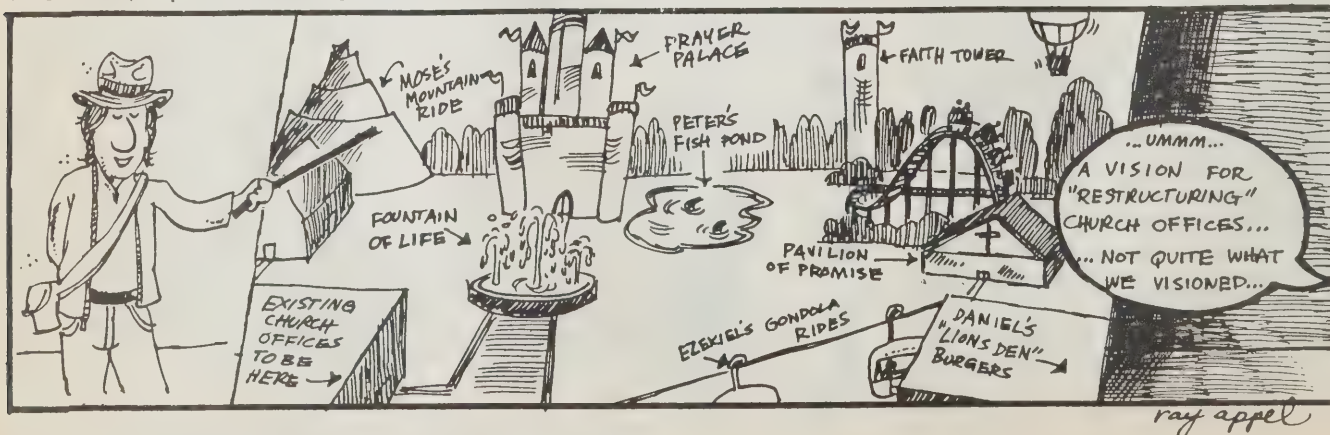 MOSE'S
MOUNTAIN
RIDE
PRAYER
PALACE
FAITH TOWER
PETER'S
FISH POND
FOUNTAIN
OF LIFE
PAVILION
OF PROMISE
EXISTING
CHURCH
OFFICES
TO BE
HERE
EZEKIEL'S GONDOLA
RIDES
DANIEL'S
"LIONS DEN"
BURGERS
...UMMM...
A VISION FOR
"RESTRUCTURING"
CHURCH OFFICES...
...NOT QUITE WHAT
WE VISIONED...
ray appel